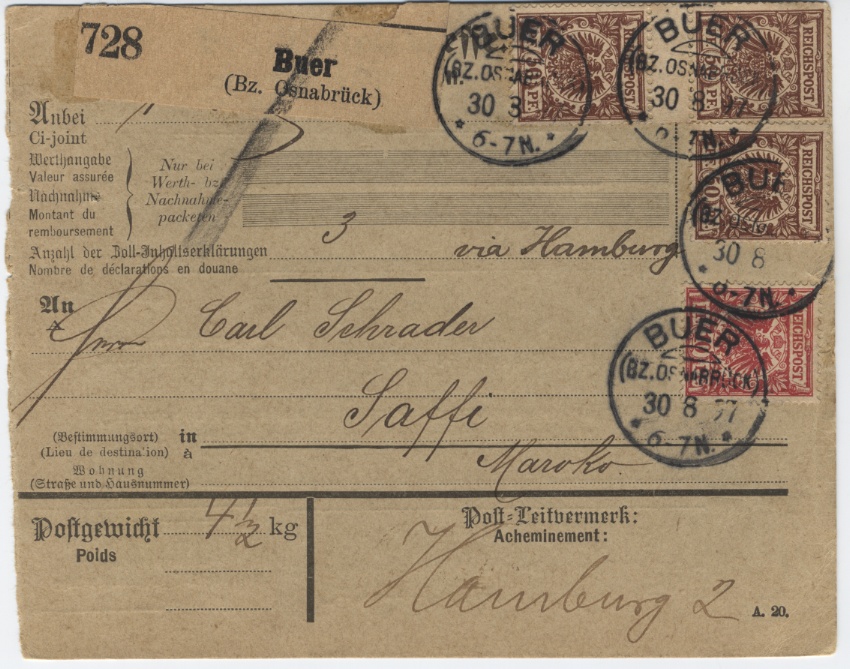 728
Buer
(Bz. Osnabrück)
BUER
(BZ. OSNAB
30 8
* 6-7N. *
50 PF.
REICHSPOST
BUER
(BZ. OSNABRÜCK)
30 8 97
* 6-7N. *
50 PF.
REICHSPOST
Anbei
Ci-joint
Werthangabe
Valeur assurée
Nachnahme
Montant du
remboursement
Nur bei
Werth- bz.
Nachnahme-
packeten
REICHSPOST
BUE
30 8
* 6-7N. *
Anzahl der Zoll-Inhaltserklärungen
Nombre de déclarations en douane
3
via Hamburg
An
à
Herrn Carl Schrader
REICHSPOST
BUER
(BZ. OSNABRÜCK)
30 8 97
* 6-7N. *
Saffi
(Bestimmungsort)
(Lieu de destination)
in
à
Maroko.
Wohnung
(Straße und Hausnummer)
Postgewicht
Poids
4 1/2 kg
Post-Leitvermerk:
Acheminement:
Hamburg 2
A. 20.